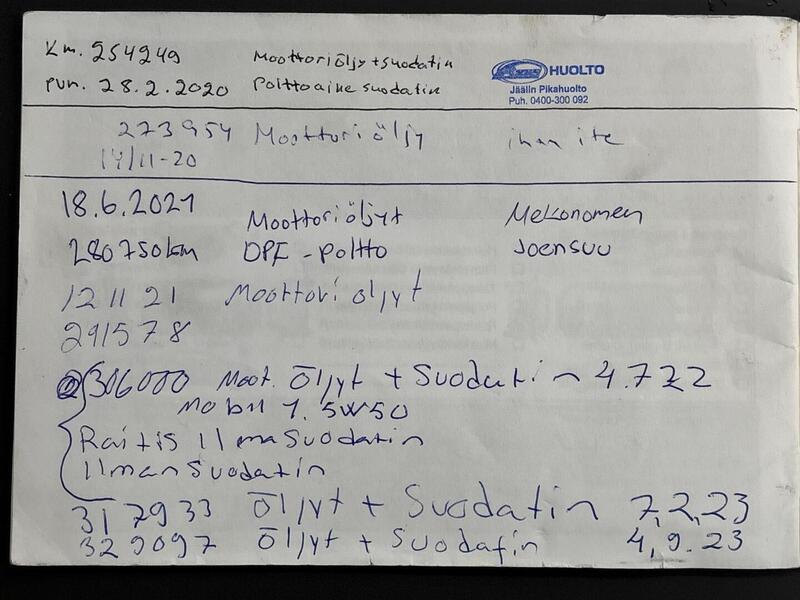 Km. 254249 Moottoriöljy + suodatin
pvm. 28.2.2020 Polttoaine suodatin
HUOLTO
Jäälin Pikahuolto
Puh. 0400-300 092
273954 Moottoriöljy ihan ite
14/11-20
18.6.2021 Moottoriöljyt Mekonomen
280750km DPF - poltto Joensuu
12 11 21 Moottori öljyt
291578
306000 Moot. Öljyt + Suodatin 4.7.22
Mobil 1. 5W50
Raitis Ilmasuodatin
Ilman Suodatin
317933 Öljyt + Suodatin 7,2,23
329097 Öljyt + Suodatin 4,9.23